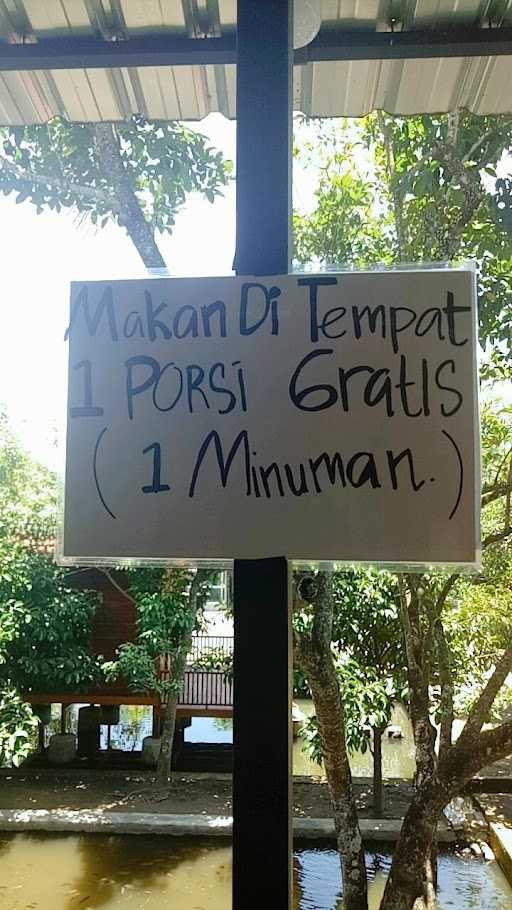 Makan Di Tempat
1 PORSi GratIS
( 1 Minuman. )